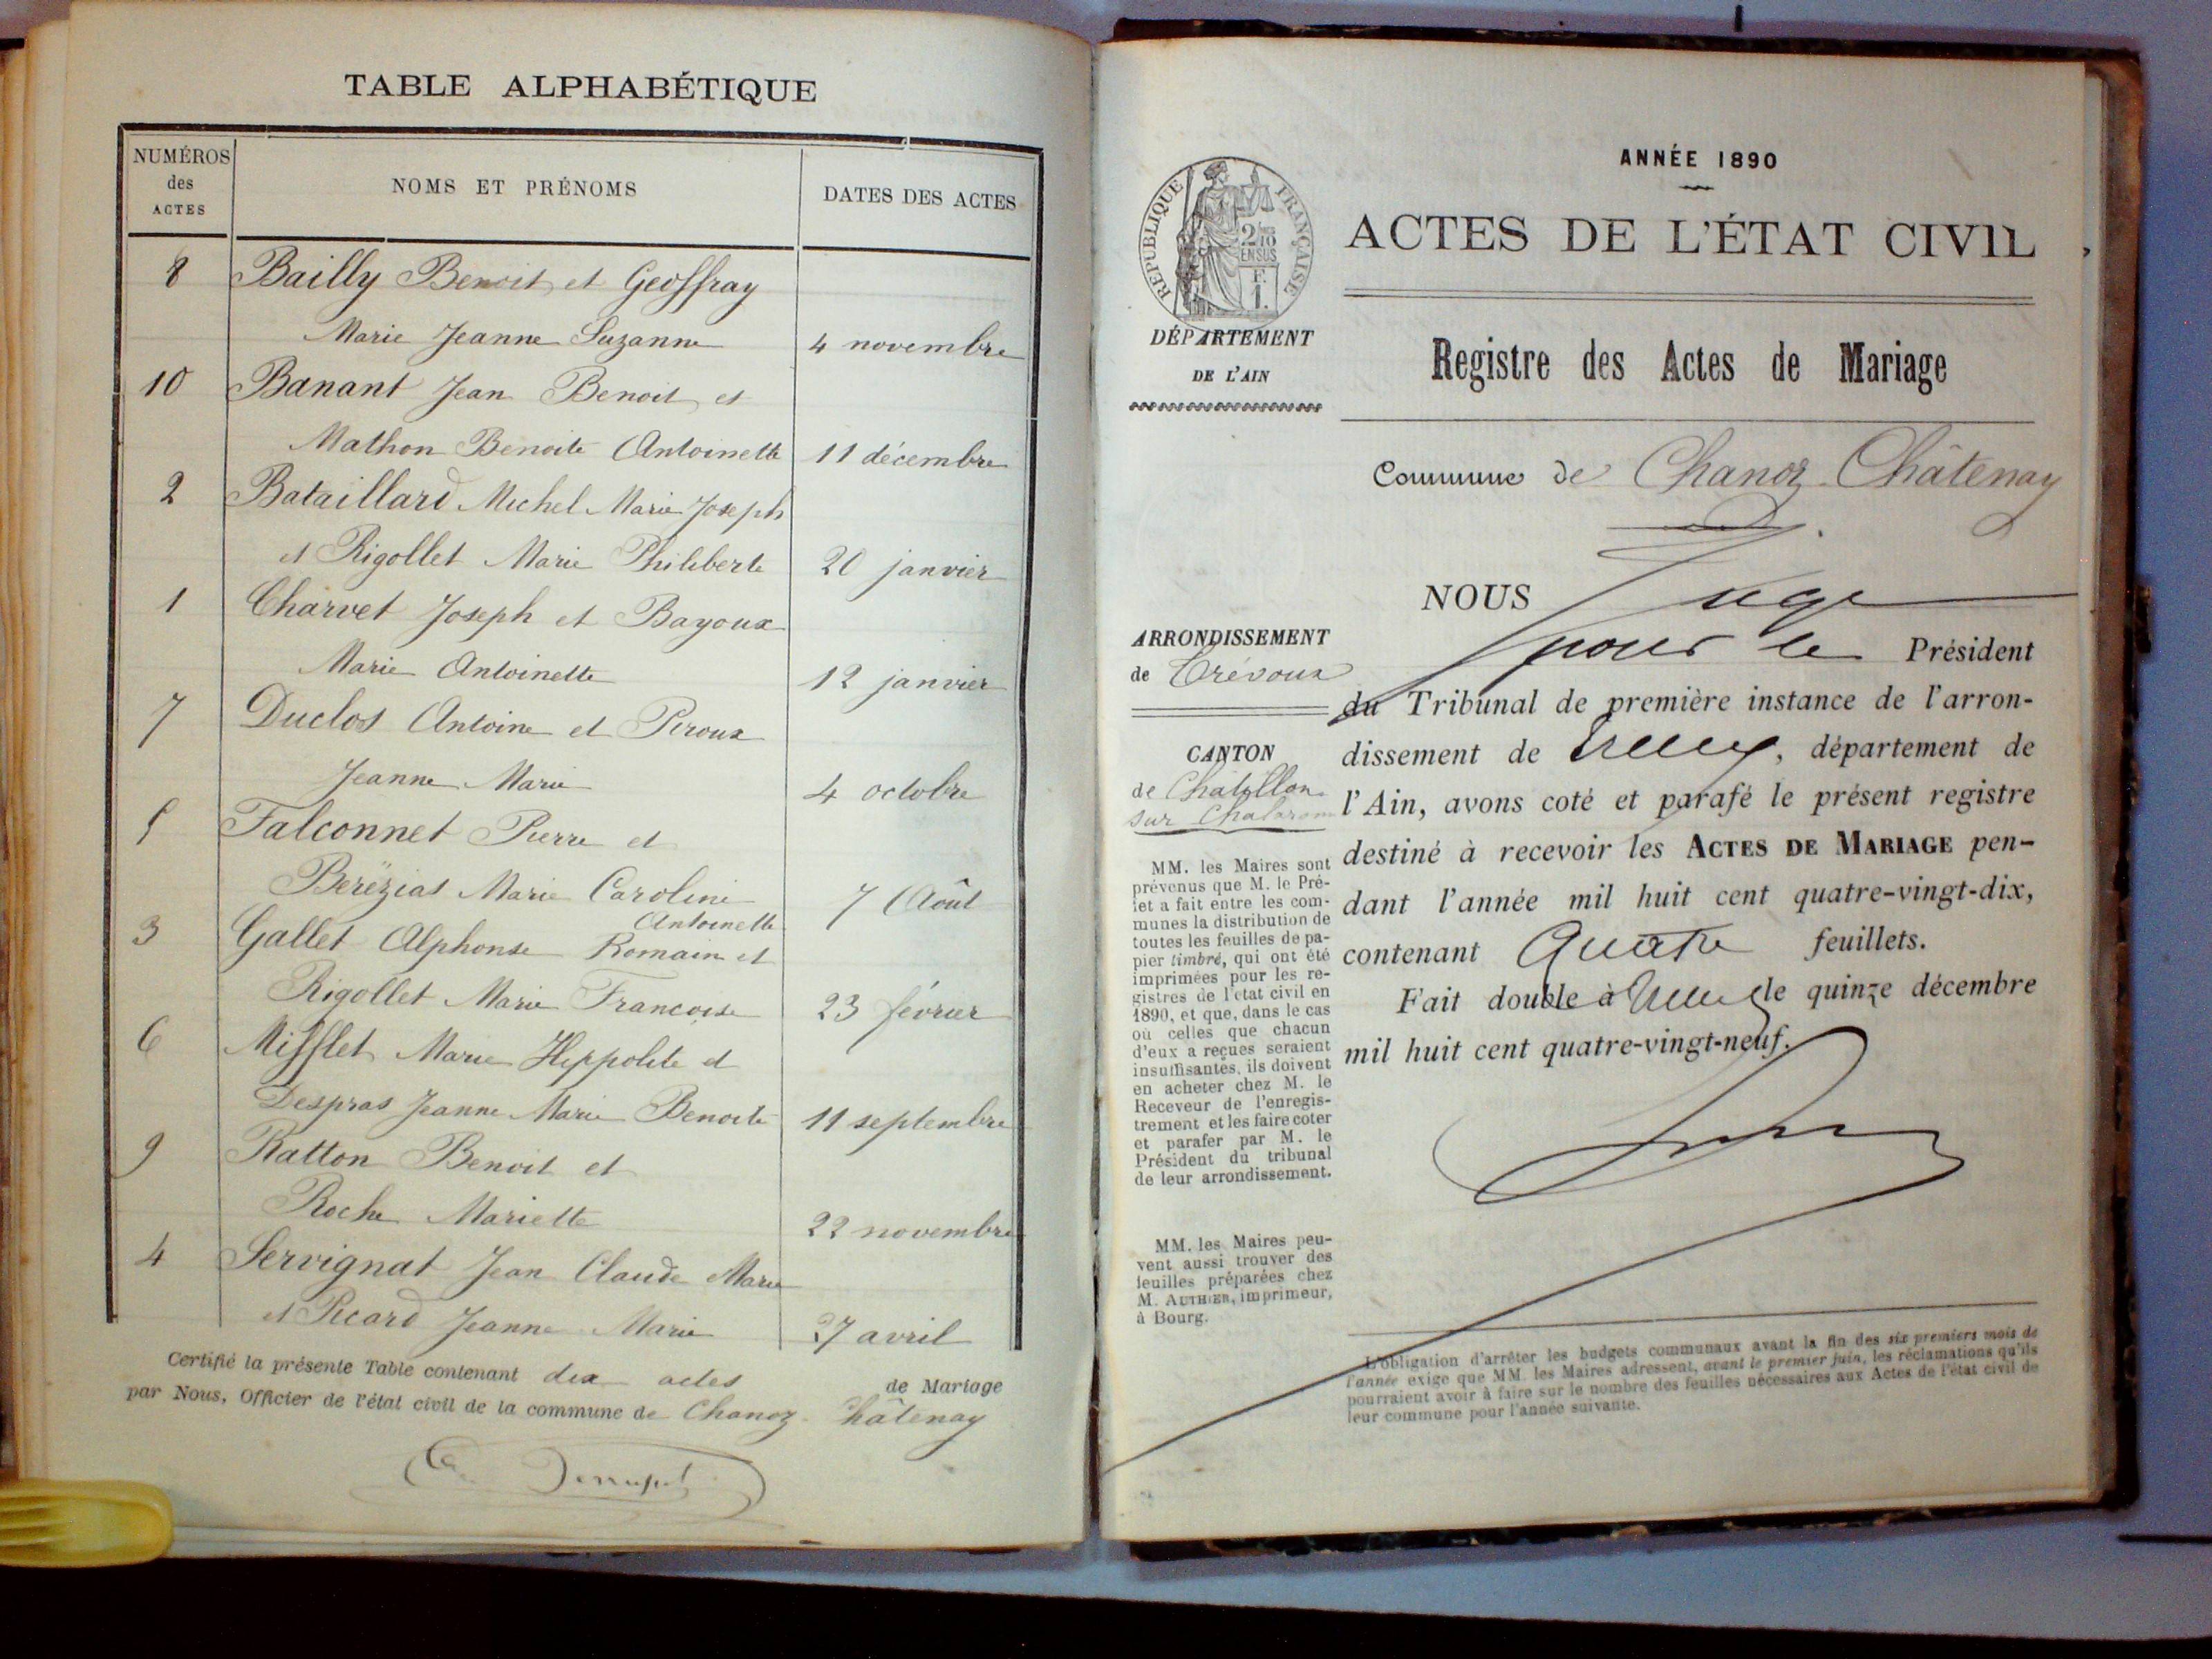 TABLE ALPHABÉTIQUE
NUMÉROS des ACTES
NOMS ET PRÉNOMS
DATES DES ACTES
8 Bailly Benoit et Geoffray
Marie Jeanne Suzanne 4 novembre
10 Banant Jean Benoit et
Mathon Benoite Antoinette 11 décembre
2 Bataillard Michel Marie Joseph
et Rigollet Marie Philiberte 20 janvier
1 Charvet Joseph et Bayoux
Marie Antoinette 12 janvier
7 Duclos Antoine et Peroux
Jeanne Marie 4 octobre
5 Falconnet Pierre et
Berëzias Marie Caroline
Antoinette 7 Août
3 Gallet Alphonse Romain et
Rigollet Marie Francoise 23 février
6 Mifflet Marie Hippolite et
Despras Jeanne Marie Benoite 11 septembre
9 Ratton Benoit et
Roche Mariette 22 novembre
4 Servignat Jean Claude Marie
et Picard Jeanne Marie 27 avril
Certifié la présente Table contenant dix actes de Mariage
par Nous, Officier de l'état civil de la commune de Chanoz-Châtenay
ANNÉE 1890
RÉPUBLIQUE FRANÇAISE
2/10
EN SUS
F.
1.
ACTES DE L'ÉTAT CIVIL
DÉPARTEMENT
DE L'AIN
Registre des Actes de Mariage
Commune de Chanoz-Châtenay
ARRONDISSEMENT
de Trévoux
CANTON
de Chatillon
sur Chalaronne
NOUS Juge
pour le Président
du Tribunal de première instance de l'arron-
dissement de , département de
l'Ain, avons coté et parafé le présent registre
destiné à recevoir les ACTES DE MARIAGE pen-
dant l'année mil huit cent quatre-vingt-dix,
contenant Quatre feuillets.
Fait double à le quinze décembre
mil huit cent quatre-vingt-neuf.
MM. les Maires sont
prévenus que M. le Pré-
fet a fait entre les com-
munes la distribution de
toutes les feuilles de pa-
pier timbré, qui ont été
imprimées pour les re-
gistres de l'état civil en
1890, et que, dans le cas
où celles que chacun
d'eux a reçues seraient
insuffisantes, ils doivent
en acheter chez M. le
Receveur de l'enregis-
trement et les faire coter
et parafer par M. le
Président du tribunal
de leur arrondissement.
MM. les Maires peu-
vent aussi trouver des
feuilles préparées chez
M. AUTHIER, imprimeur,
à Bourg.
L'obligation d'arrêter les budgets communaux avant la fin des six premiers mois de
l'année exige que MM. les Maires adressent, avant le premier juin, les réclamations qu'ils
pourraient avoir à faire sur le nombre des feuilles nécessaires aux Actes de l'état civil de
leur commune pour l'année suivante.